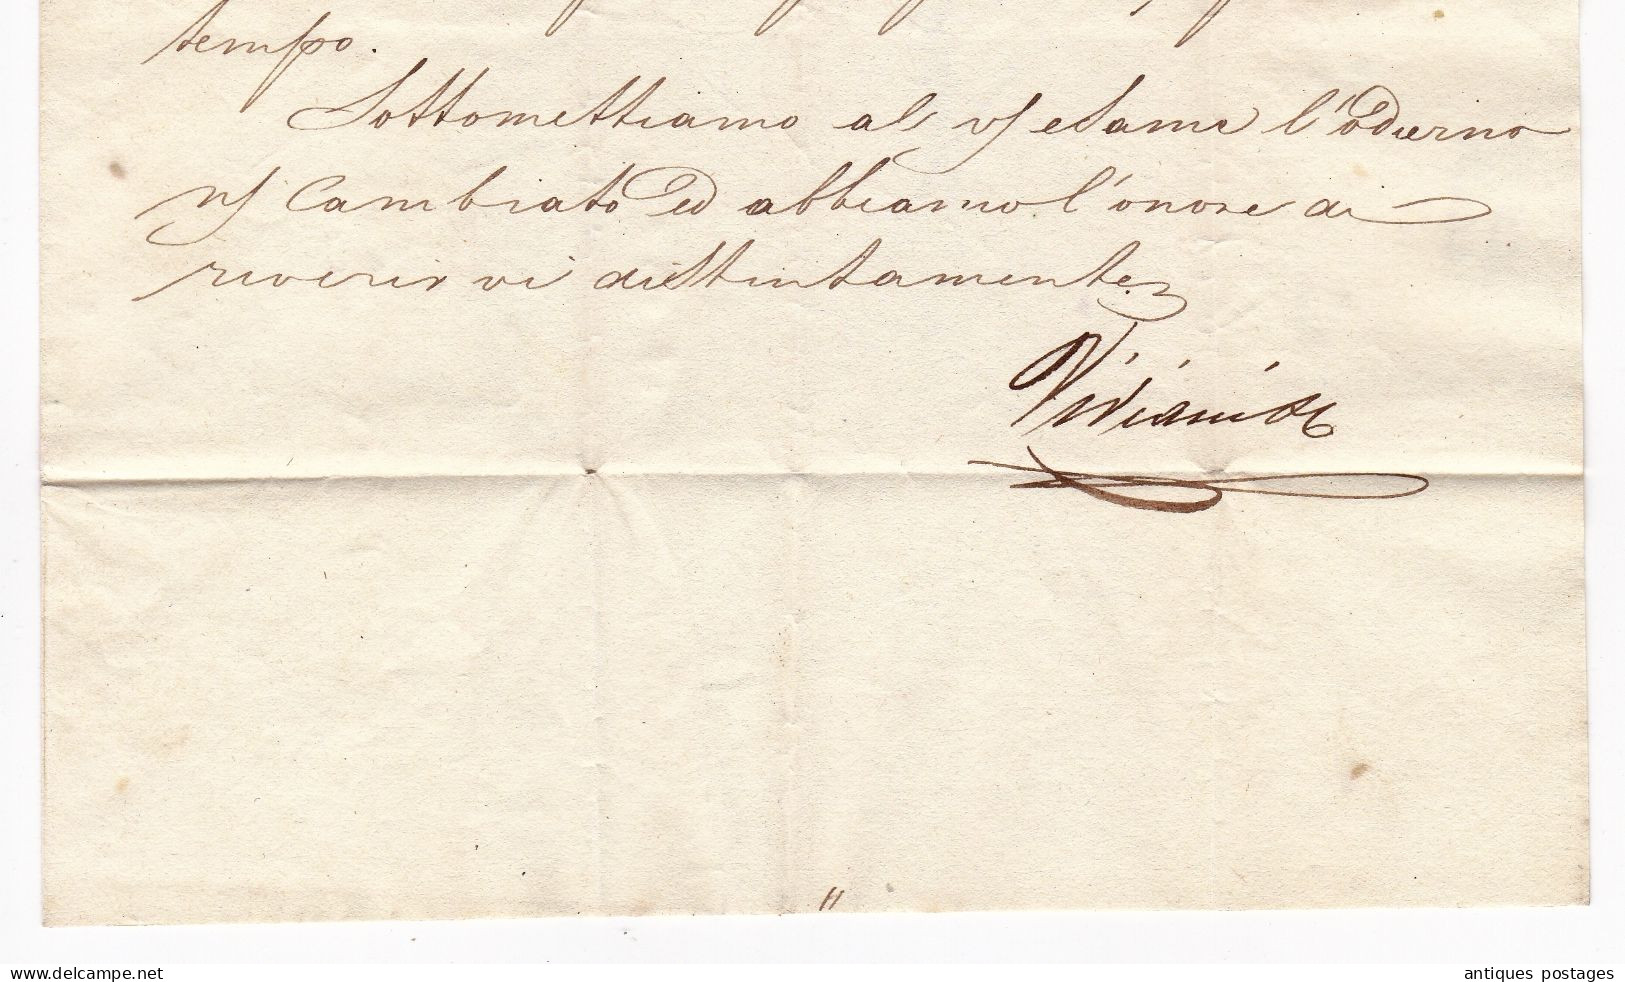 tempo.
Sottomettiamo al vs esame l'odierno
ns Cambiato ed abbiamo l'onore di
riverirvi distintamente
Viviani
www.delcampe.net
antiques postages